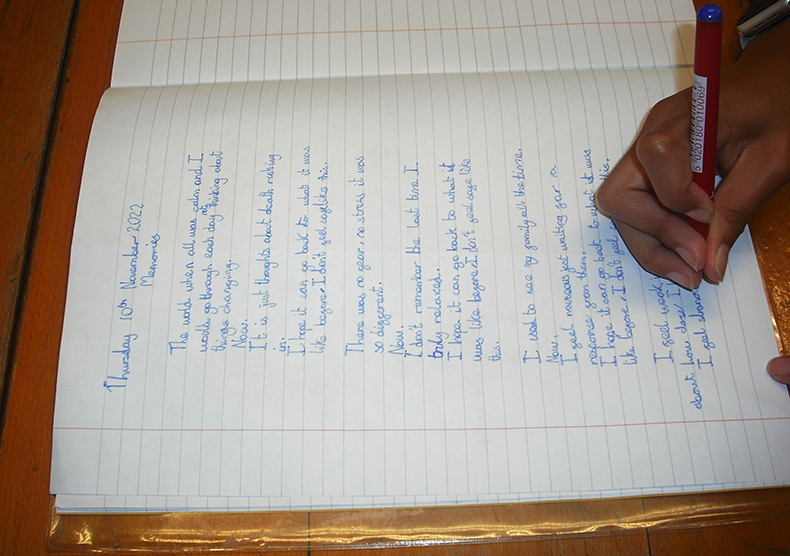 Thursday 10th November 2022
Memories
The world when all was calm and I
go through each day thinking about
things changing.
Now..
It is just thoughts about death rushing
in.
I hope it can go back to what it was
like before, I don't feel safe like this.
There was no fear, no stress it was
so different.
Now.
I don't remember the last time I
truly relaxed.
I hope it can go back to what it
was like before I don't feel safe like
this.
I used to see my family all the time.
Now.
I feel nervous just waiting for a
response from them.
I hope it can go back to what it was
like before, I don't feel
I feel weak
about how close, I
I feel
5 020180 010069